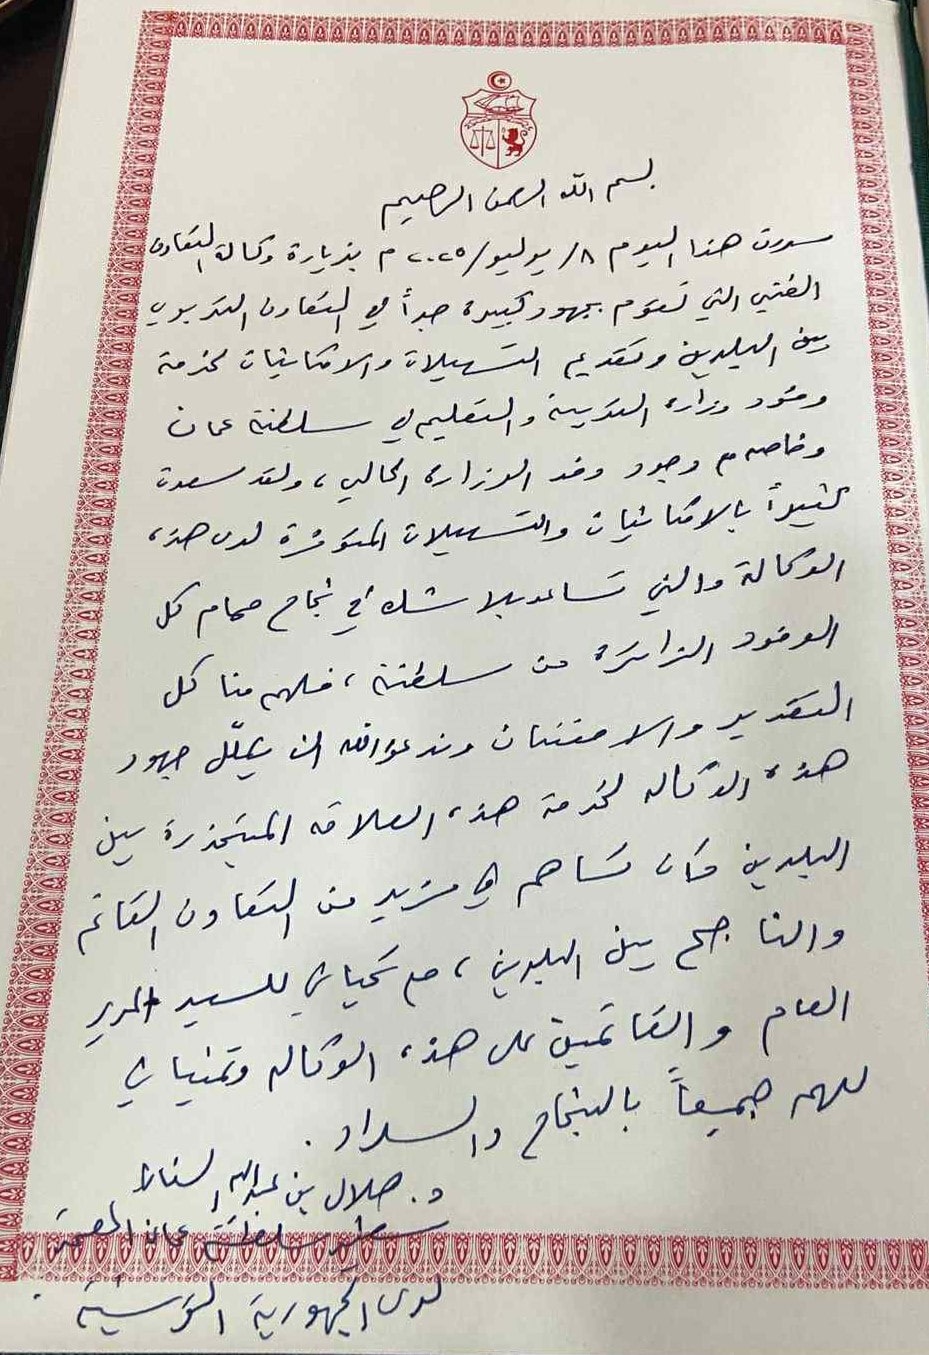 بسم الله الرحمن الرحيم
سررت هذا اليوم ٨/ يوليو/ ٢٠٢٥ م بزيارة وكالة التعاون
الفني التي تقوم بجهود كبيرة جداً في التعاون التربوي
بين البلدين وتقديم التسهيلات والامكانيات لخدمة
وفود وزارة التربية والتعليم في سلطنة عمان
وخاصه م وجود وفد الوزارة الحالي، ولقد سعدت
كثيراً بالامكانيات والتسهيلات المتوفرة لدى هذه
الوكالة والتي تساعد بلا شك في نجاح مهام كل
الوفود الزائرة من سلطنة، فلهم منا كل
التقدير والامتنان وندعو الله ان يكلّل جهود
هذه الوكاله لخدمة هذه العلاقه المتجذرة بين
البلدين وأن تساهم في مزيد من التعاون القائم
والناجح بين البلدين، مع تحياتي للسيد المدير
العام والقائمين على هذه الوكاله وتمنياتي
لهم جميعاً بالنجاح والسداد.
د. هلال بن عبدالله السناني
سفير سلطنة عمان المعتمد
لدى الجمهورية التونسية.